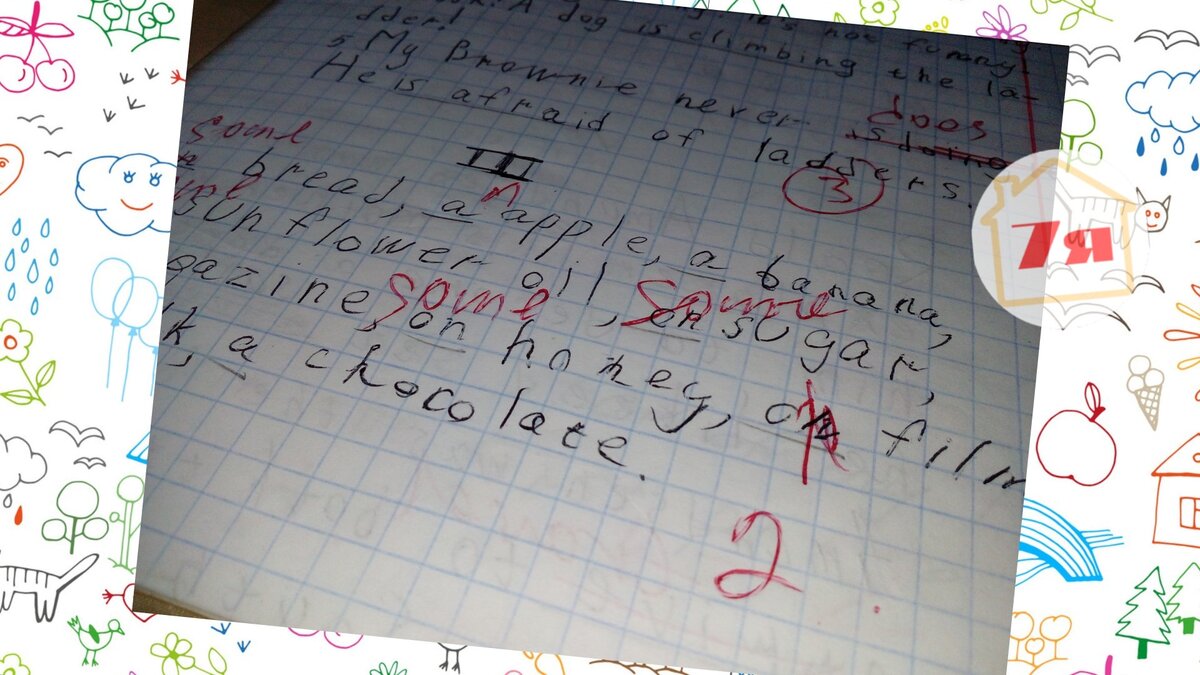 A dog is climbing the la-
dder!
5 My Brownie never is doing
doos
He is afraid of ladders.
3
III
some
bread, an apple, a banana,
sunflower oil, en sugar,
some some
gazine, on honey, film
k, a chocolate.
2
7Я